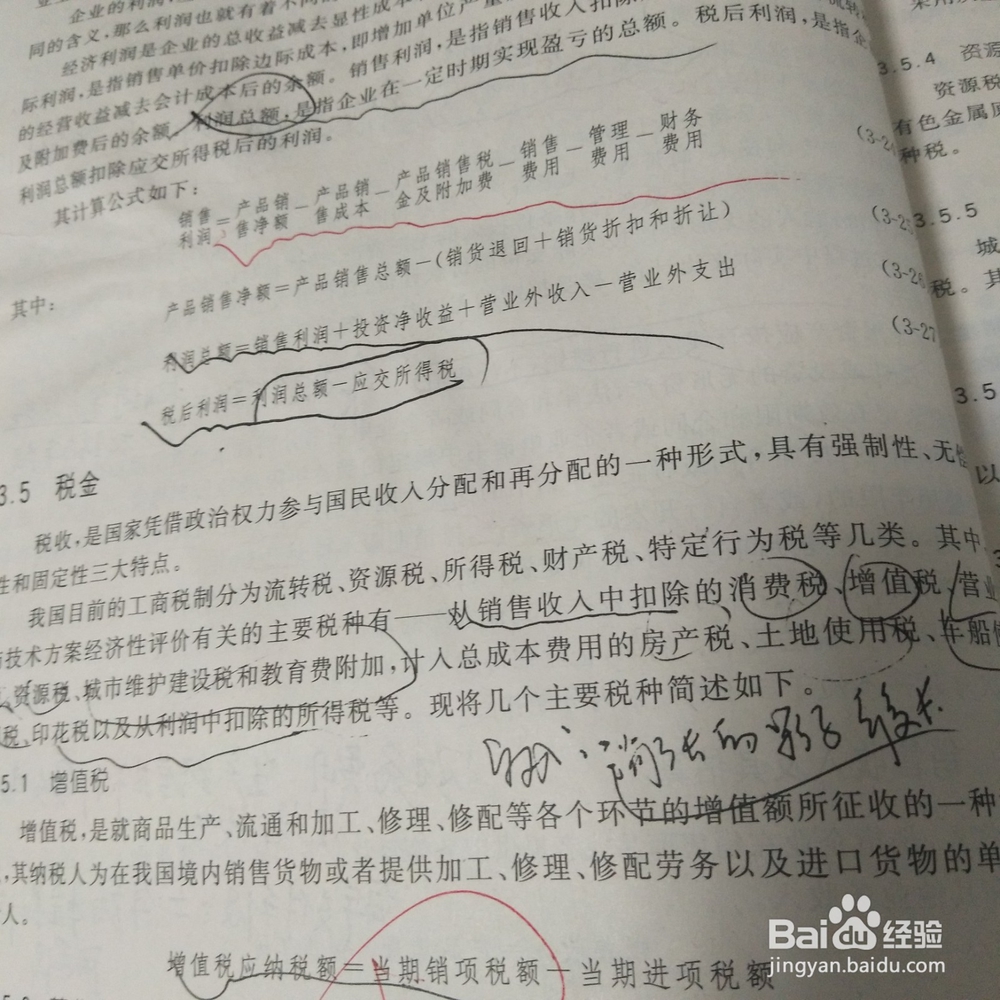 同的含义,那么利润也就有着不同的
经济利润是企业的总收益减去显性成本
际利润,是指销售单价扣除边际成本,即增加单位产量
的经营收益减去会计成本后的余额。销售利润,是指销售收入扣除
及附加费后的余额。利润总额,是指企业在一定时期实现盈亏的总额。税后利润,是指企
利润总额扣除应交所得税后的利润。
其计算公式如下:
销售利润=产品销售净额-产品销售成本-产品销售税金及附加费-销售费用-管理费用-财务费用
其中:
产品销售净额=产品销售总额-(销货退回+销货折扣和折让)
利润总额=销售利润+投资净收益+营业外收入-营业外支出
税后利润=利润总额-应交所得税
(3-2
(3-2
(3-26
(3-27
3.5 税金
税收,是国家凭借政治权力参与国民收入分配和再分配的一种形式,具有强制性、无偿
性和固定性三大特点。
我国目前的工商税制分为流转税、资源税、所得税、财产税、特定行为税等几类。其中,
与技术方案经济性评价有关的主要税种有——从销售收入中扣除的消费税、增值税、营业
资源税、城市维护建设税和教育费附加,计入总成本费用的房产税、土地使用税、车船使
税、印花税以及从利润中扣除的所得税等。现将几个主要税种简述如下。
5.1 增值税
增值税,是就商品生产、流通和加工、修理、修配等各个环节的增值额所征收的一种
,其纳税人为在我国境内销售货物或者提供加工、修理、修配劳务以及进口货物的单
人。
增值税应纳税额=当期销项税额-当期进项税额
3.5.4 资源
资源税
有色金属原
种税。
3.5.5
城
税。其
3.5
以
Baidu经验
jingyan.baidu.com